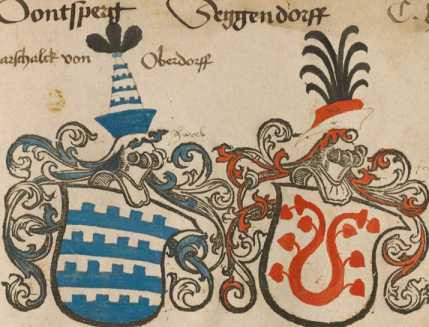 Dontsperg Seggendorff C.
arschalck von Oberdorff